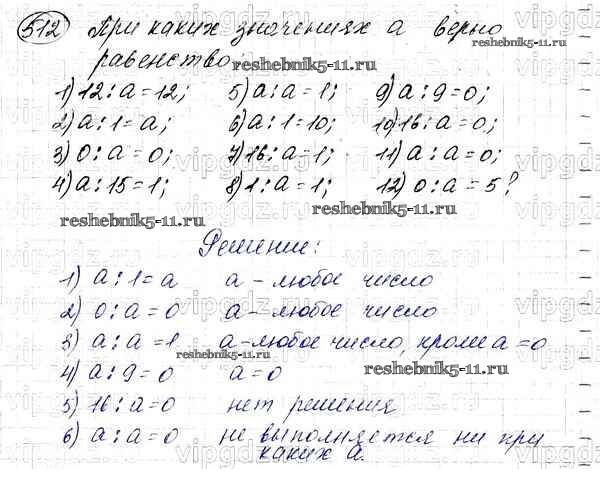 512 При каких значениях а верно
равенство:
1) 12:а=12; 5) а:а=1; 9) а:9=0;
2) а:1=а; 6) а:1=10; 10) 16:а=0;
3) 0:а=0; 7) 16:а=1; 11) а:а=0;
4) а:15=1; 8) 1:а=1; 12) 0:а=5?
Решение:
1) а:1=а а - любое число
2) 0:а=0 а - любое число
3) а:а=1 а-любое число, кроме а=0
4) а:9=0 а=0
5) 16:а=0 нет решения
6) а:а=0 не выполняется ни при
каких а.
reshebnik5-11.ru
reshebnik5-11.ru
reshebnik5-11.ru
reshebnik5-11.ru
reshebnik5-11.ru
reshebnik5-11.ru
vipgdz.ru